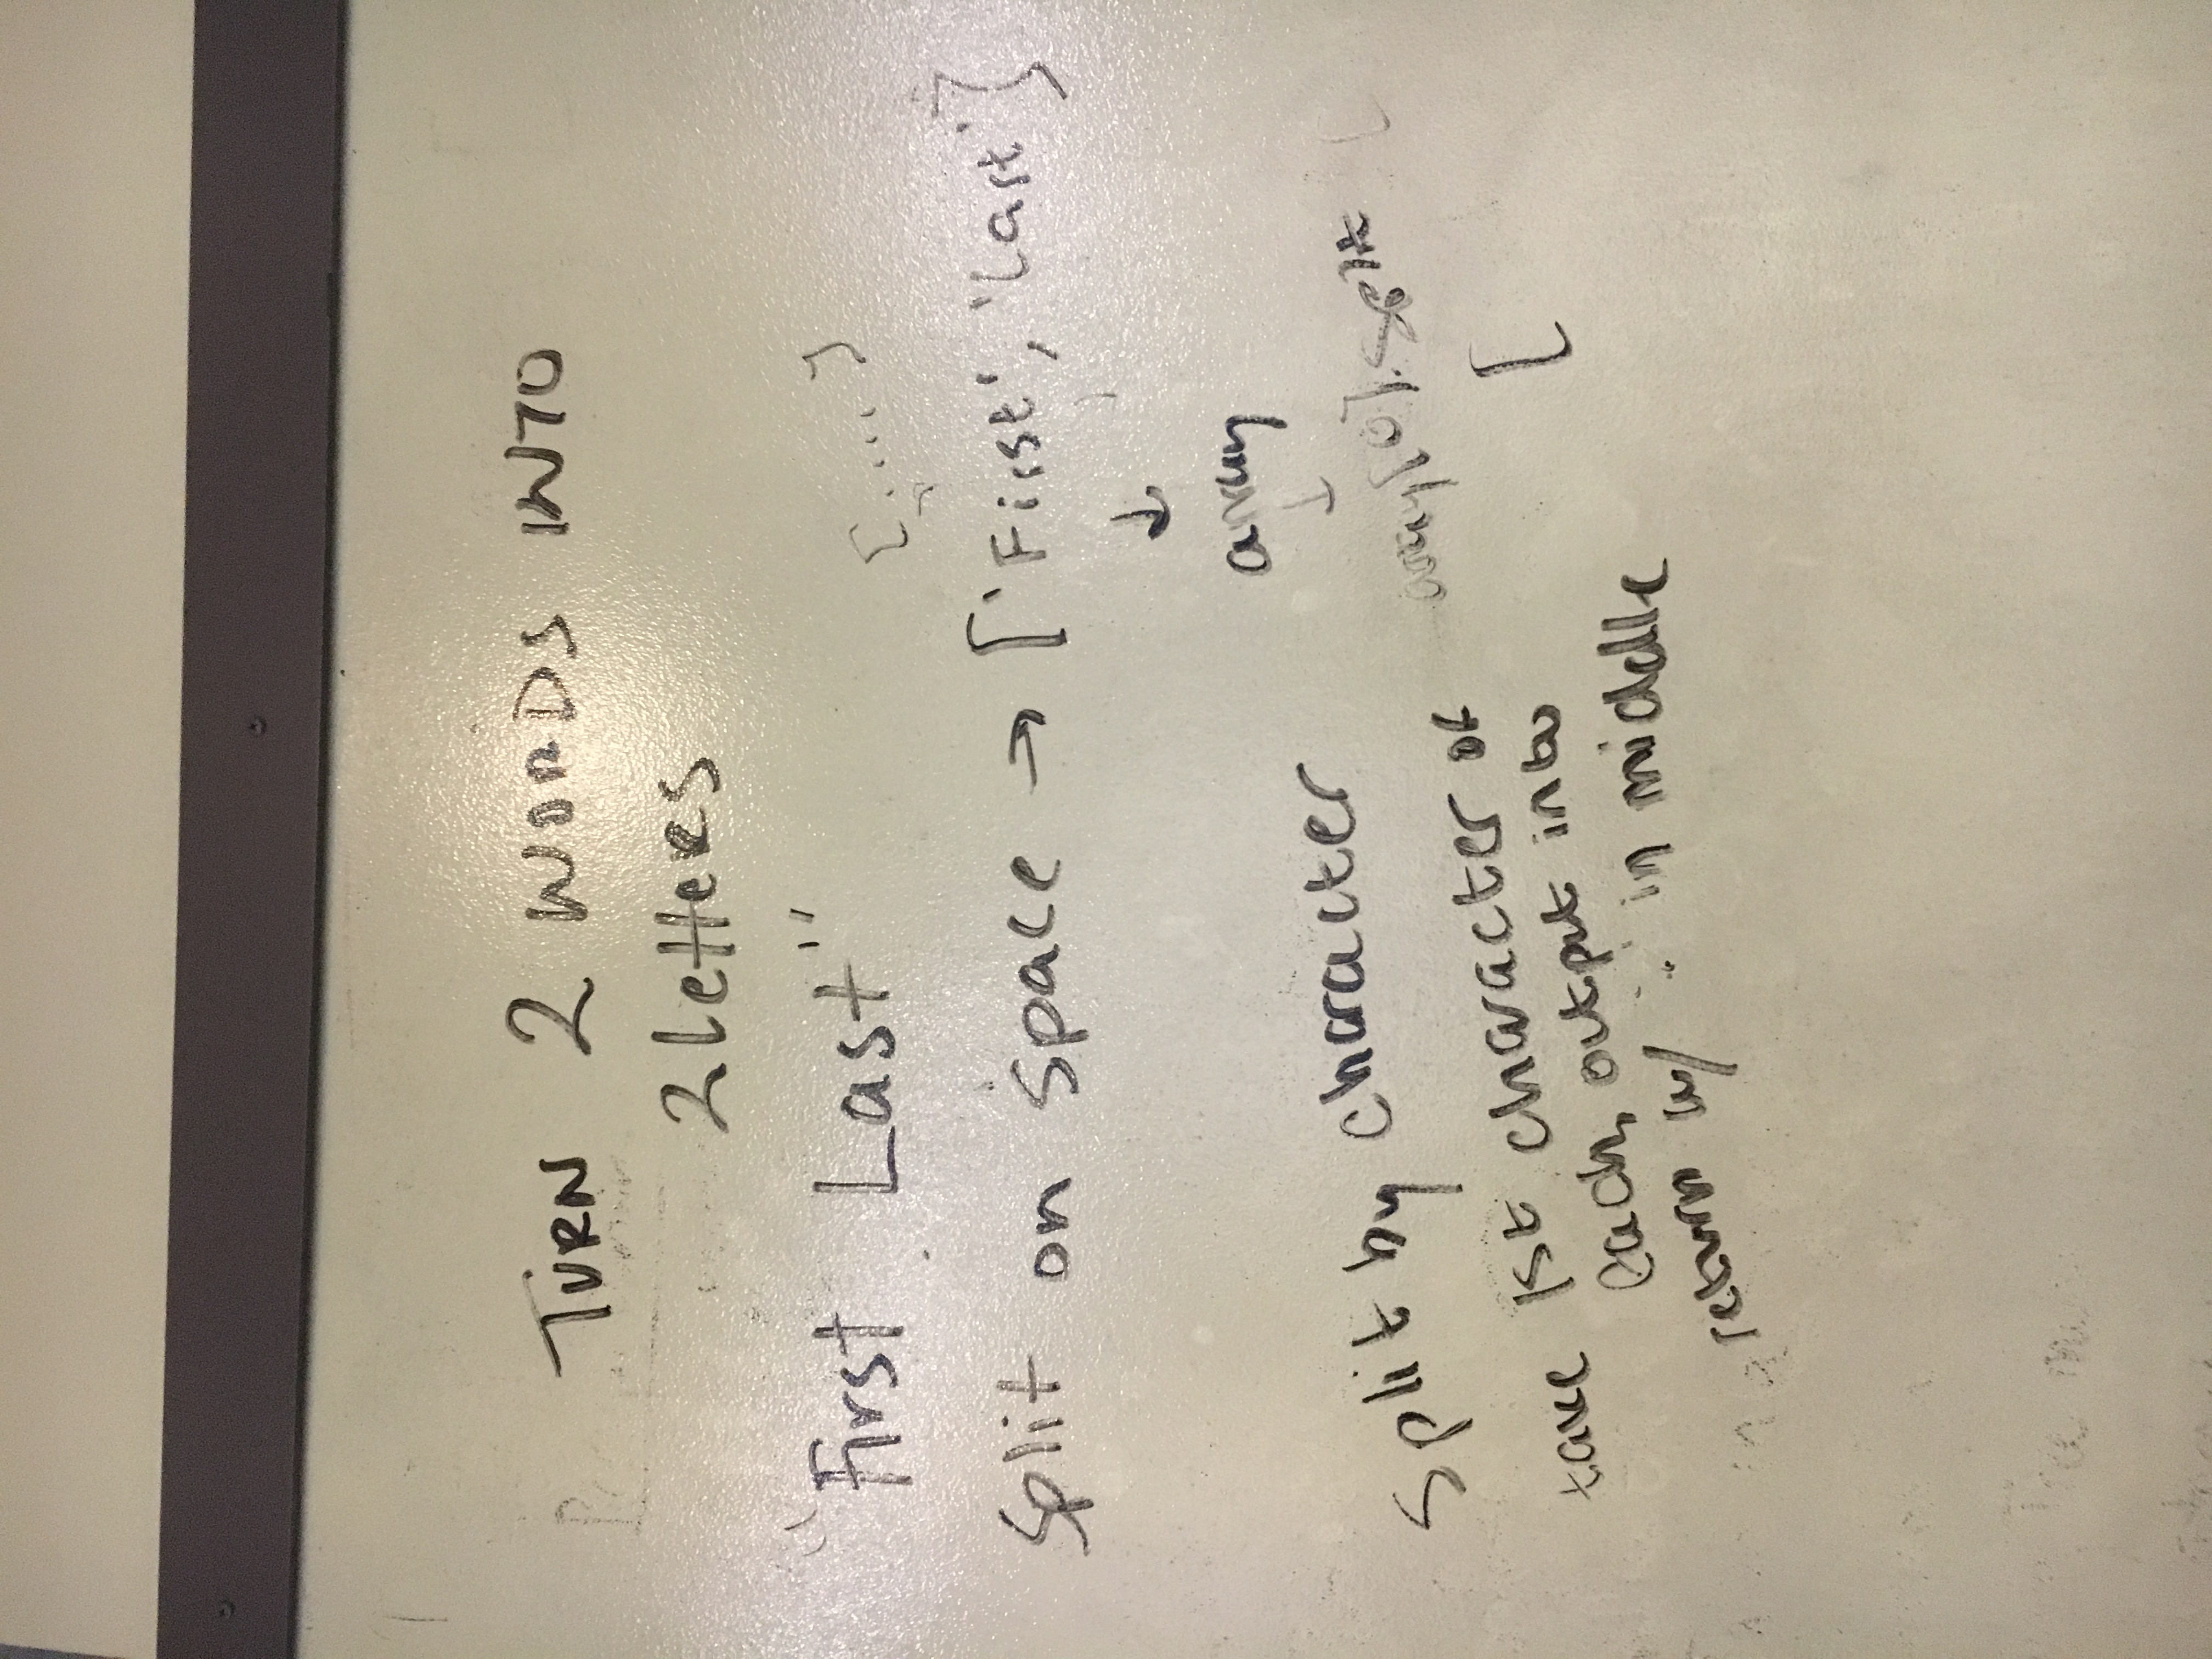 TURN 2 WORDS INTO
2 letters
"First Last"
[....]
Split on space → ['First', 'Last']
↓
array
↓
array[0].split [
Split by character
[
take 1st character of
each, output into
return w/ '.' in middle